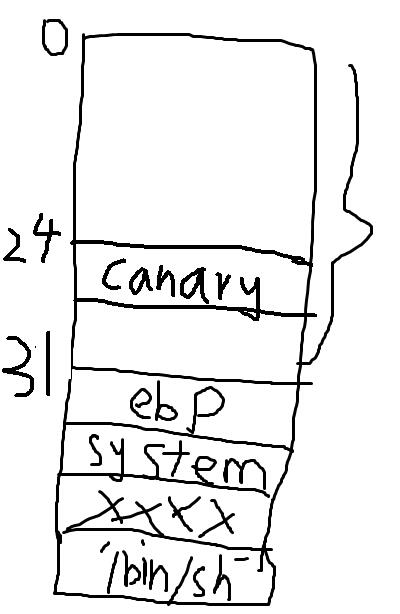 0
24
canary
31
ebp
system
xxxx
"/bin/sh"